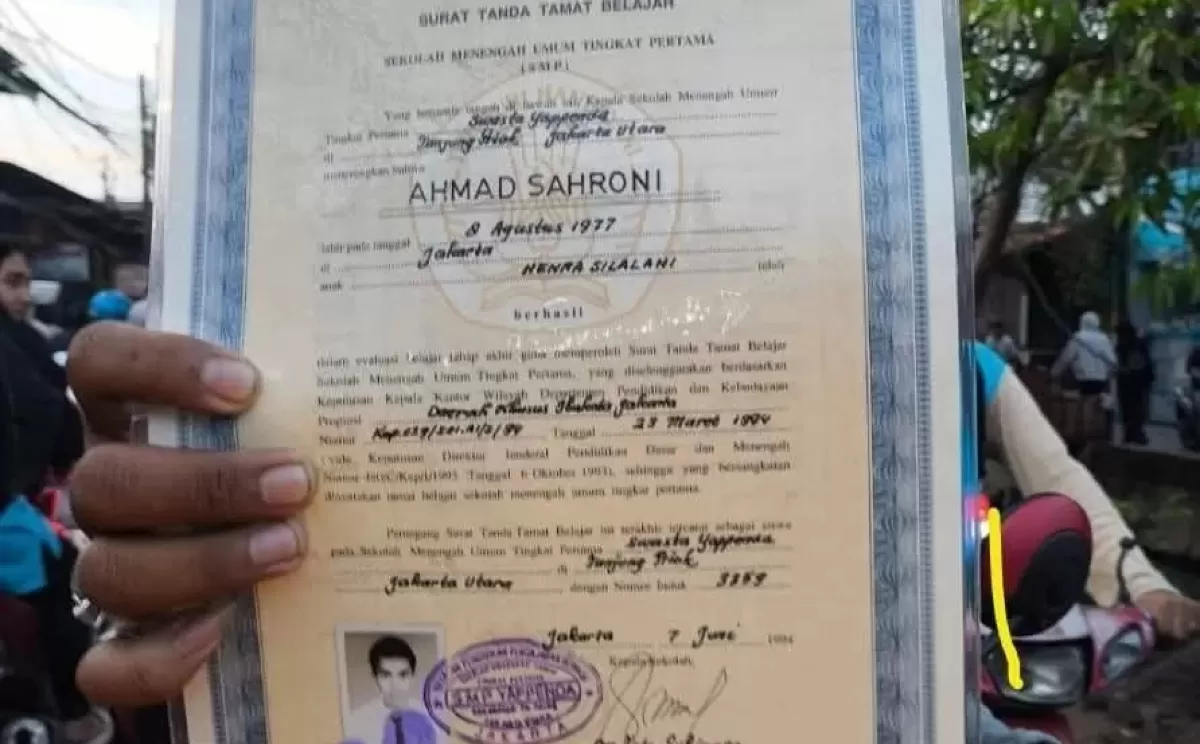 SURAT TANDA TAMAT BELAJAR
SEKOLAH MENENGAH UMUM TINGKAT PERTAMA
( SMP )
Yang bertanda tangan di bawah ini, Kepala Sekolah Menengah Umum
Tingkat Pertama Swasta Yappenda
di Tanjung Priok Jakarta Utara
menerangkan bahwa
AHMAD SAHRONI
lahir pada tanggal 8 Agustus 1977
di Jakarta
anak HENRA SILALAHI telah
berhasil
dalam evaluasi belajar tahap akhir guna memperoleh Surat Tanda Tamat Belajar
Sekolah Menengah Umum Tingkat Pertama, yang diselenggarakan berdasarkan
Keputusan Kepala Kantor Wilayah Departemen Pendidikan dan Kebudayaan
Propinsi Daerah Khusus Ibukota Jakarta
Nomor Tanggal 23 Maret 1994
Keputusan Direktur Jenderal Pendidikan Dasar dan Menengah
Tanggal 6 Oktober 1993), sehingga yang bersangkutan
dinyatakan tamat belajar sekolah menengah umum tingkat pertama.
Pemegang Surat Tanda Tamat Belajar ini terakhir tercatat sebagai siswa
pada Sekolah Menengah Umum Tingkat Pertama Swasta Yappenda
di Tanjung Priok
Jakarta Utara dengan Nomor Induk 3259
Jakarta 7 Juni 1994
Kepala Sekolah,
SMP YAPPENDA
JAKARTA